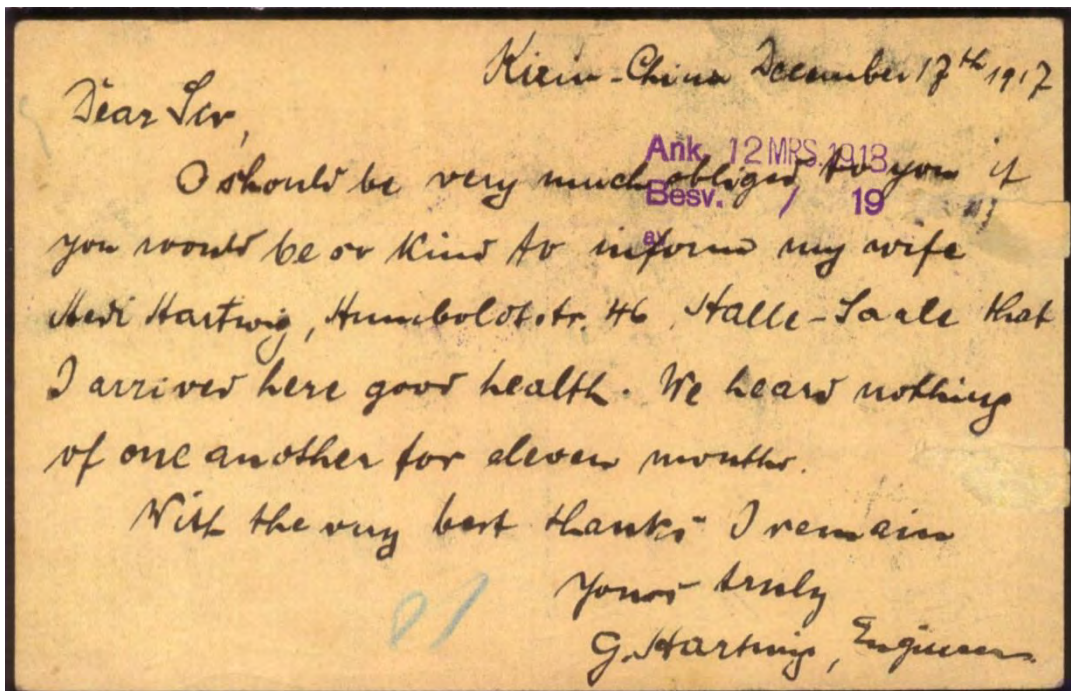 Kirin-China December 17th 1917
Dear Sir,
Ank. 12 MRS. 1918
I should be very much obliged to you if
Besv. / 19
you would be so kind to inform my wife
Hedi Hartwig, Humboldtstr. 46, Halle-Saale that
I arrived here good health. We heard nothing
of one another for eleven months.
With the very best thanks I remain
Yours truly
G. Hartwig, Engineer.